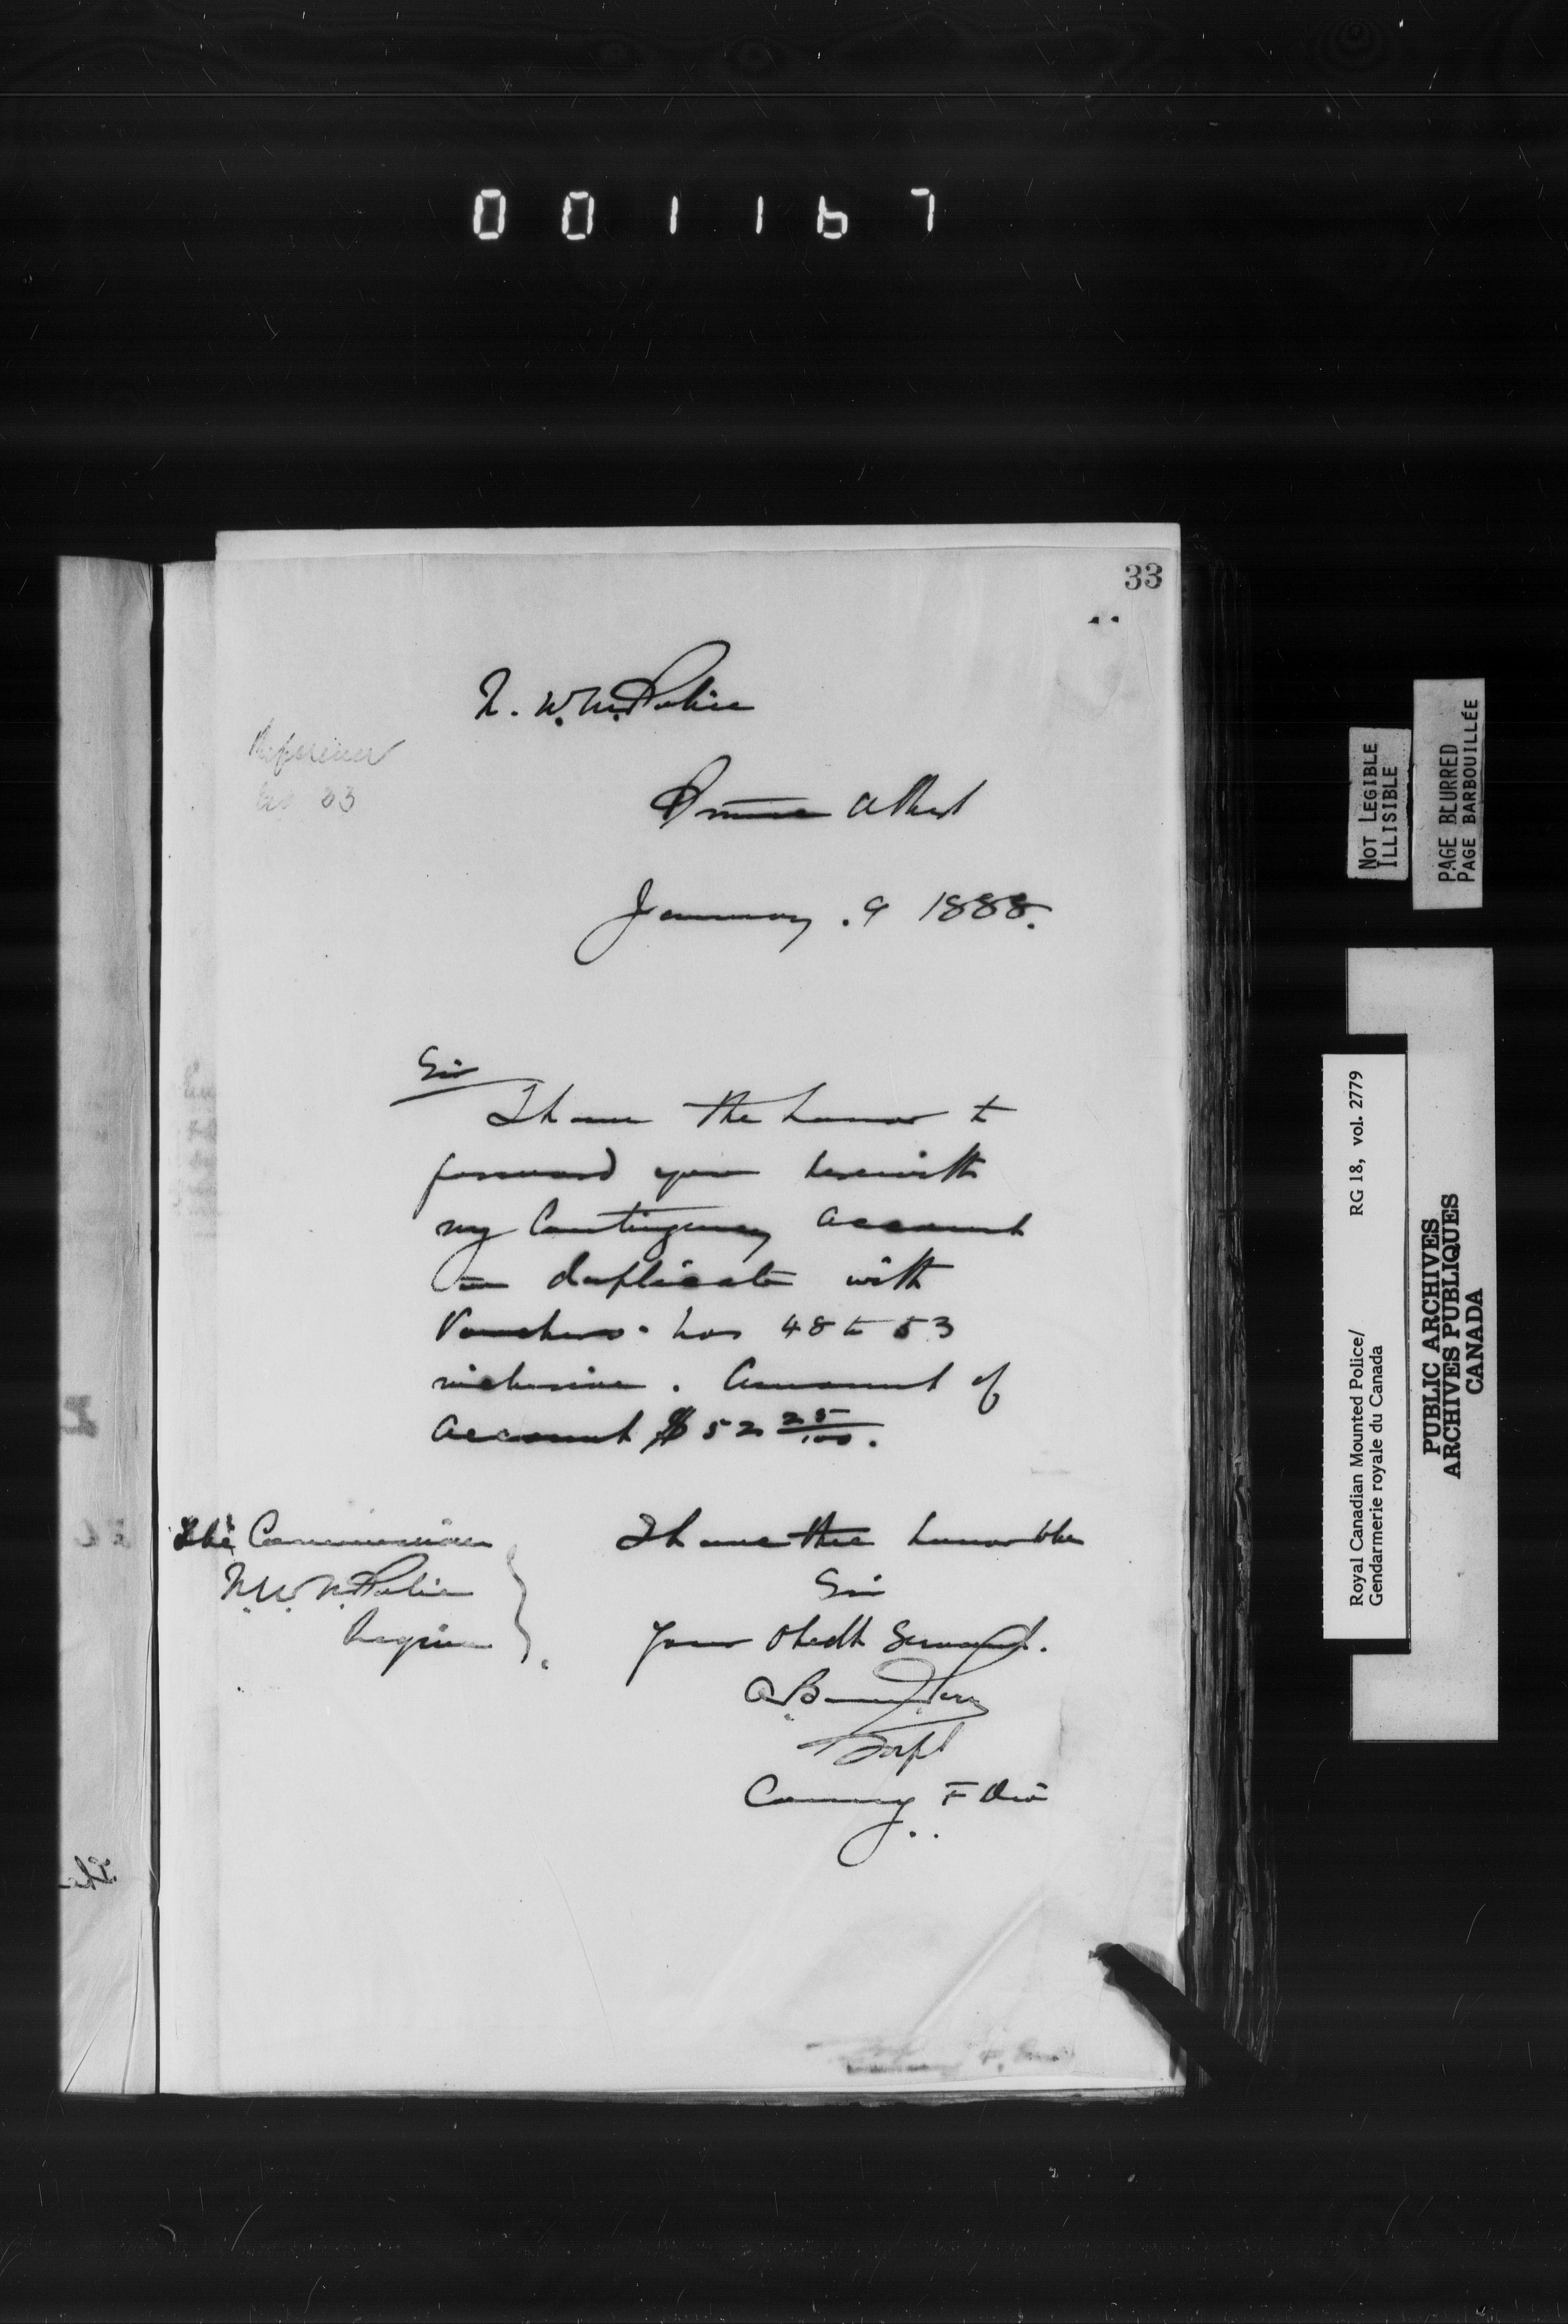 001167
33
N. W. M. Police
Reference
No 33
Prince Albert
January . 9 1888.
Sir
I have the honor to
forward you herewith
my Contingency account
in duplicate with
Vouchers. Nos 48 to 53
inclusive. Amount of
account $ 52 25/100.
The Commissioner
N. W. M. Police
Regina
I have the honor to be
Sir
Your Obedt Servant.
A. B. Perry
Supt
Commg F Div
NOT LEGIBLE
ILLISIBLE
PAGE BLURRED
PAGE BARBOUILLÉE
Royal Canadian Mounted Police/ RG 18, vol. 2779
Gendarmerie royale du Canada
PUBLIC ARCHIVES
ARCHIVES PUBLIQUES
CANADA